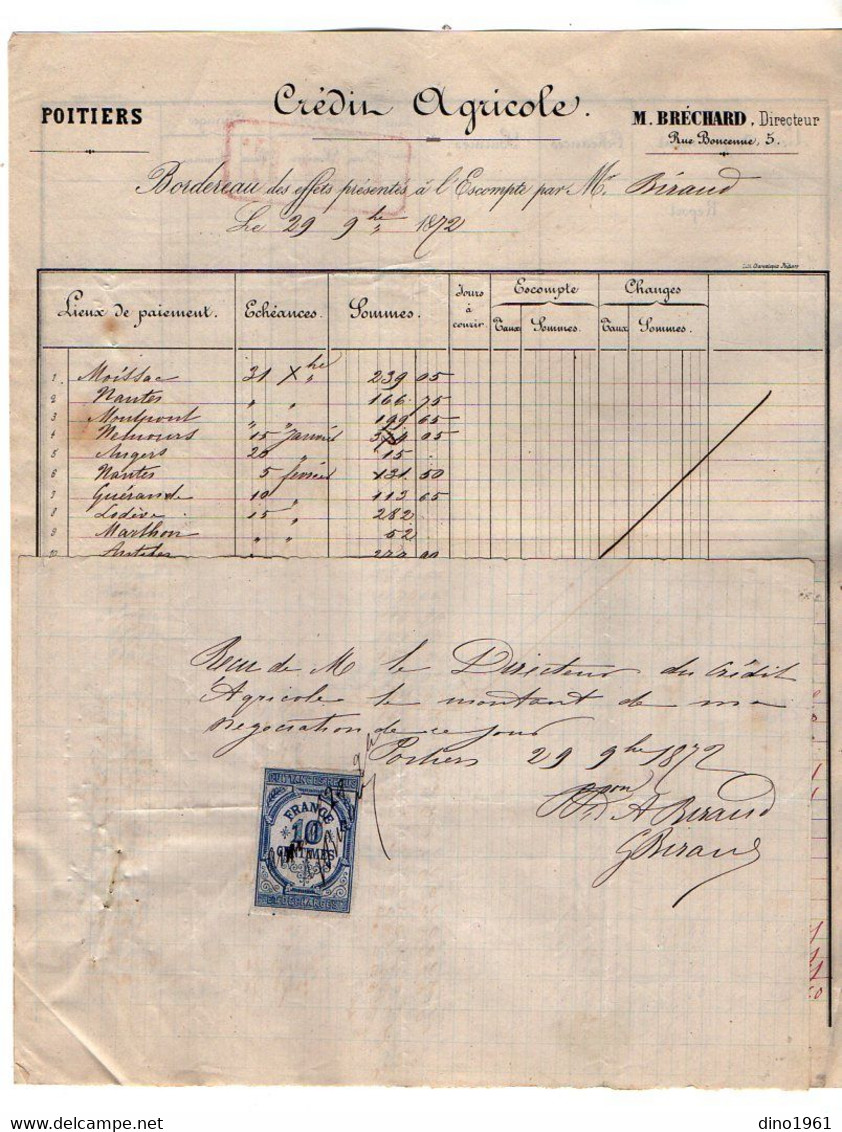 POITIERS
Crédit Agricole.
M. BRÉCHARD, Directeur
Rue Boncenne, 5.
Bordereau des effets présentés à l'Escompte par Mr Biraud
Le 29 9bre 1872
Lieux de paiement.
Echéances.
Sommes.
Jours à courir.
Escompte
Taux
Sommes.
Changes
Taux
Sommes.
1 Moissac 31 Xbre 239 05
2 Nantes " " 166 75
3 Montpont " " 199 65
4 Nemours 15 Janvier 05
5 Angers 20 " 15 .
6 Nantes 5 février 131 50
7 Guérande 10 " 113 65
8 Lodève 15 " 282 .
9 Marthon " " 52
10
Recu de M le Directeur du Crédit
Agricole le montant de ma
negociation de ce jour
Poitiers 29 9bre 1872
A Biraud
G Biraud
QUITTANCES REÇUS
FRANCE
10
CENTIMES
ET DÉCHARGES
dino1961